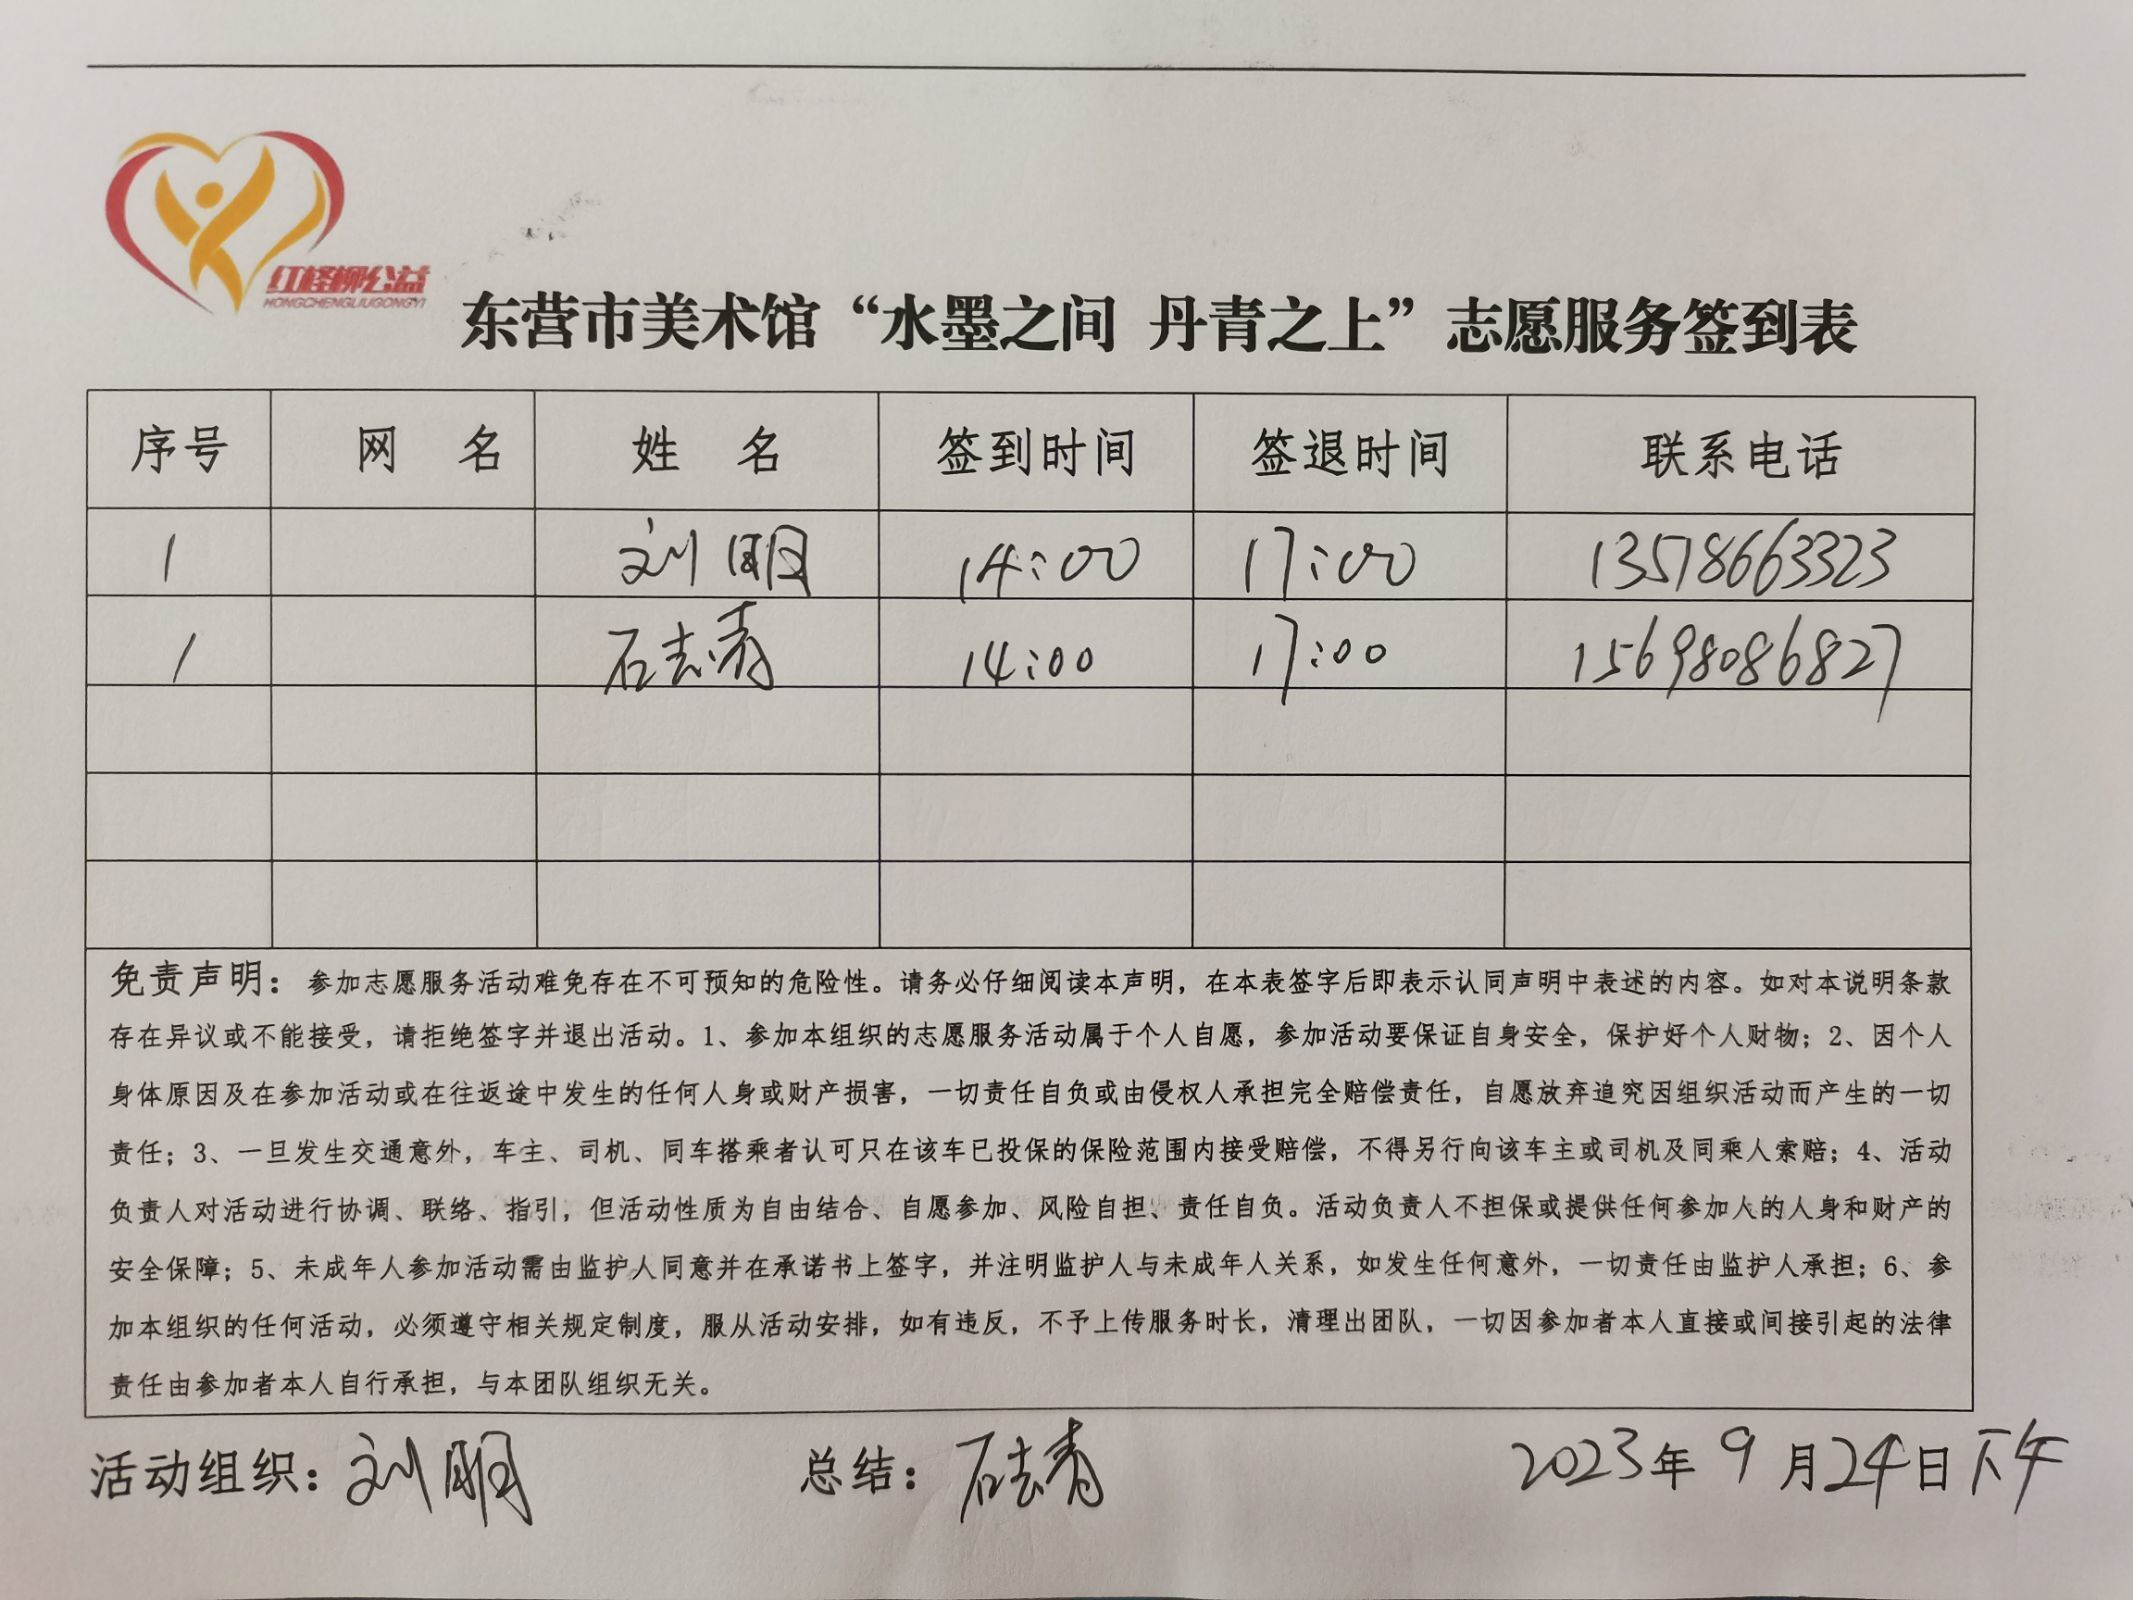 红柽柳公益
HONGCHENGLIUGONGYI
东营市美术馆“水墨之间 丹青之上”志愿服务签到表
序号 网 名 姓 名 签到时间 签退时间 联系电话
1 刘明 14:00 17:00 13518663323
1 石志青 14:00 17:00 15698086827
免责声明：参加志愿服务活动难免存在不可预知的危险性。请务必仔细阅读本声明，在本表签字后即表示认同声明中表述的内容。如对本说明条款
存在异议或不能接受，请拒绝签字并退出活动。1、参加本组织的志愿服务活动属于个人自愿，参加活动要保证自身安全，保护好个人财物；2、因个人
身体原因及在参加活动或在往返途中发生的任何人身或财产损害，一切责任自负或由侵权人承担完全赔偿责任，自愿放弃追究因组织活动而产生的一切
责任；3、一旦发生交通意外，车主、司机、同车搭乘者认可只在该车已投保的保险范围内接受赔偿，不得另行向该车主或司机及同乘人索赔；4、活动
负责人对活动进行协调、联络、指引，但活动性质为自由结合、自愿参加、风险自担、责任自负。活动负责人不担保或提供任何参加人的人身和财产的
安全保障；5、未成年人参加活动需由监护人同意并在承诺书上签字，并注明监护人与未成年人关系，如发生任何意外，一切责任由监护人承担；6、参
加本组织的任何活动，必须遵守相关规定制度，服从活动安排，如有违反，不予上传服务时长，清理出团队，一切因参加者本人直接或间接引起的法律
责任由参加者本人自行承担，与本团队组织无关。
活动组织：刘明 总结：石志青 2023年9月24日下午